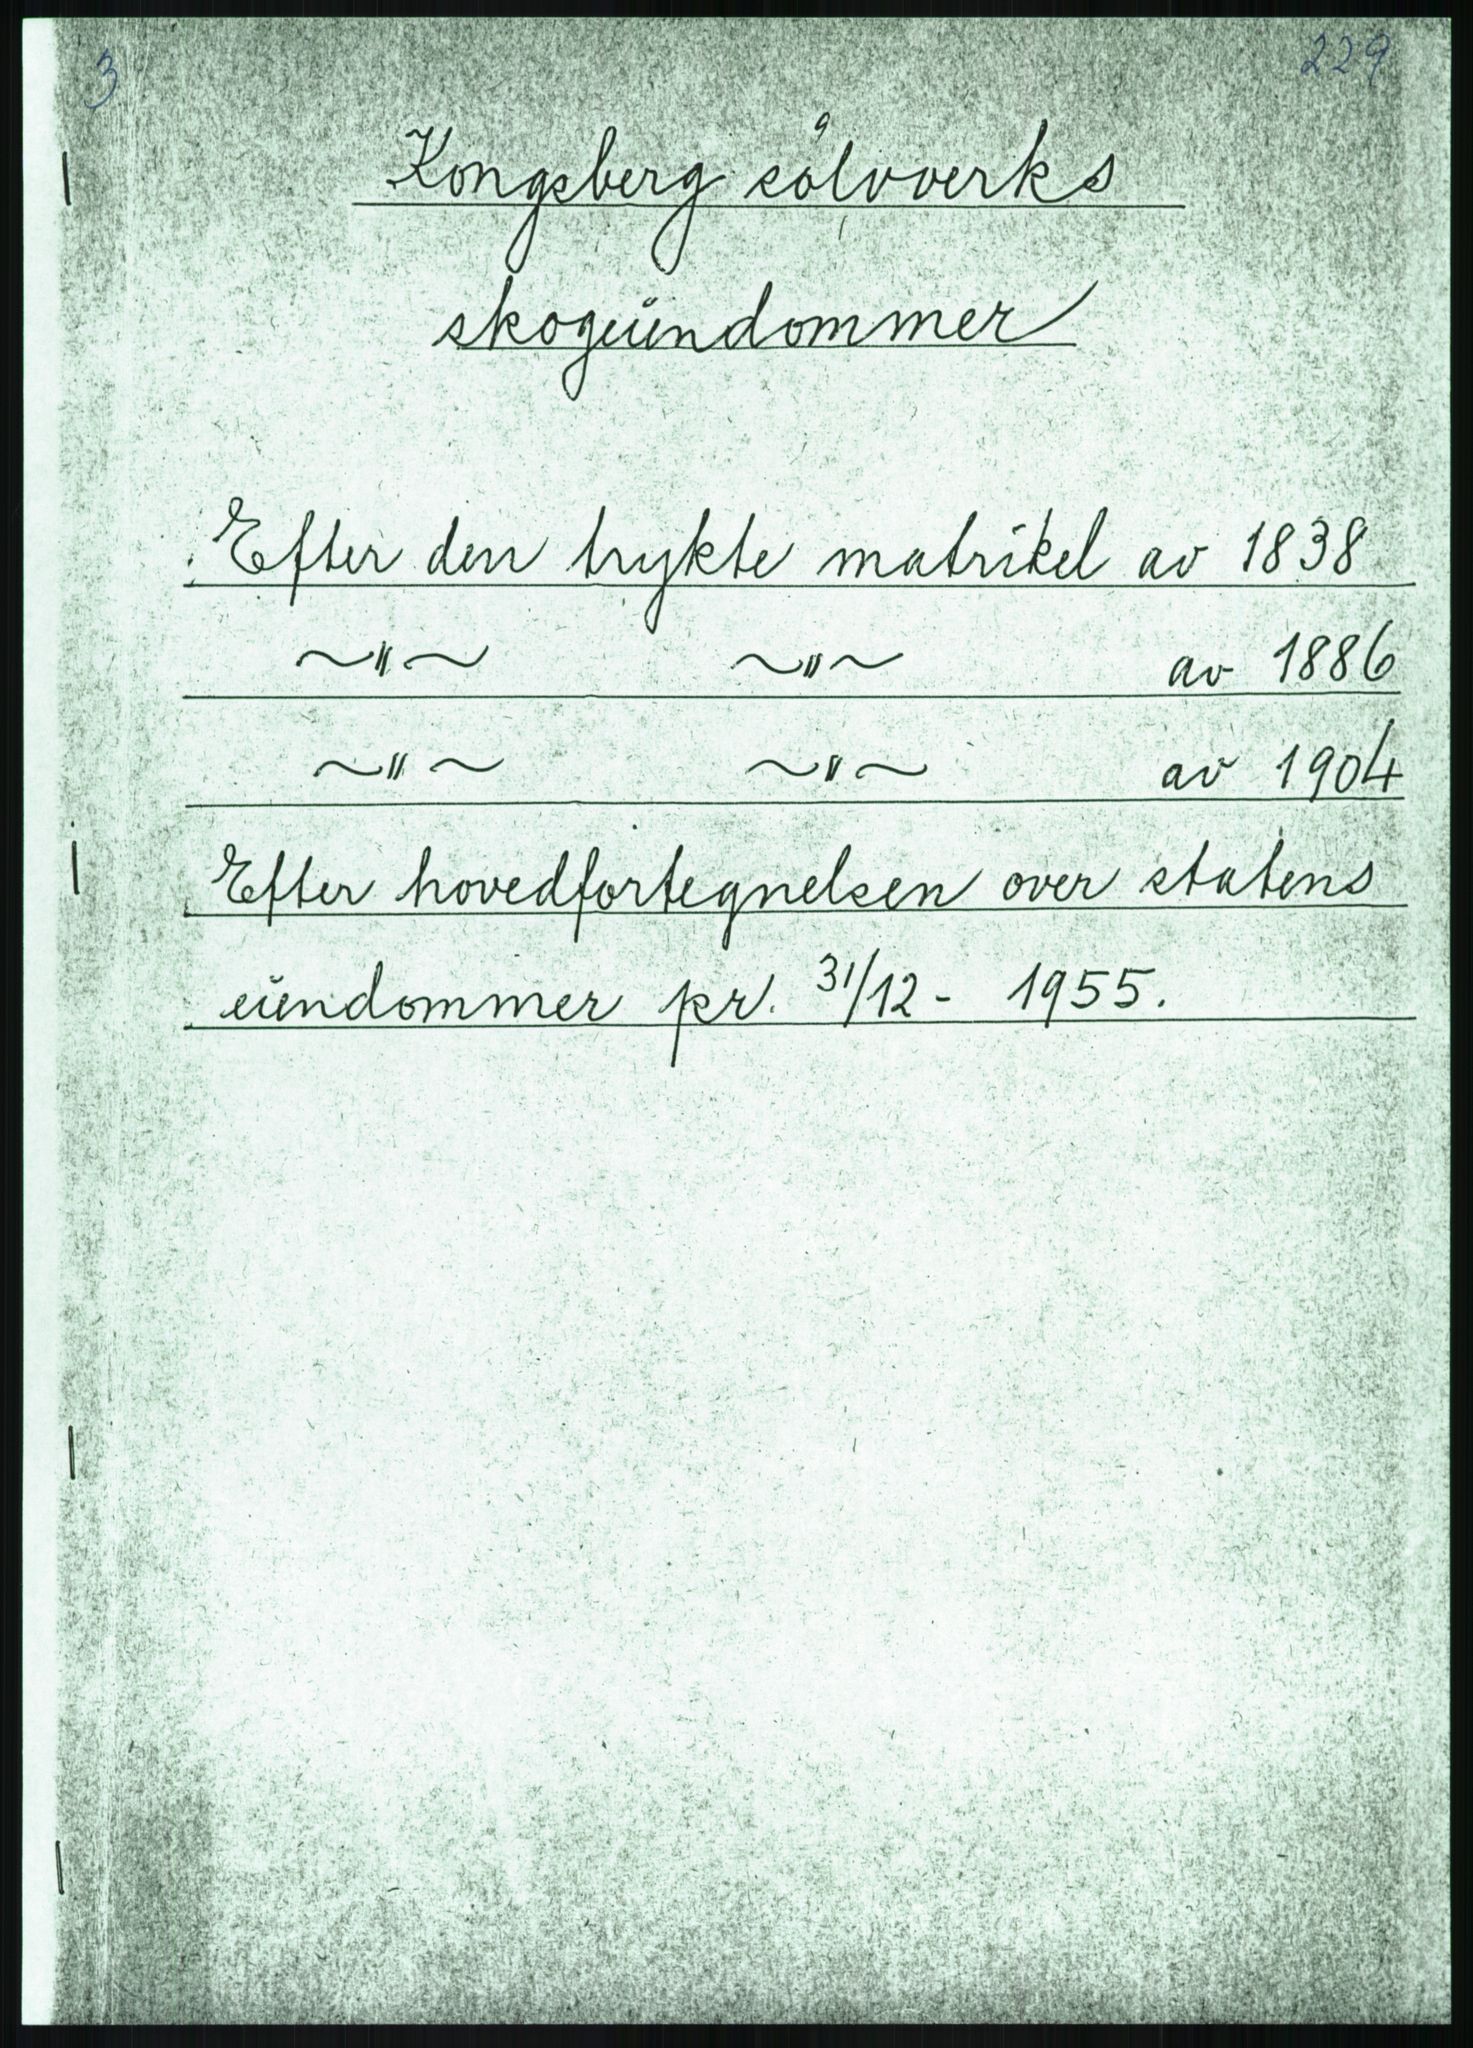 3 229
Kongsberg sölvverks
skogeiendommer
Efter den trykte matrikel av 1838
~"~ ~"~ av 1886
~"~ ~"~ av 1904
Efter hovedfortegnelsen over statens
eiendommer pr. 31/12 - 1955.